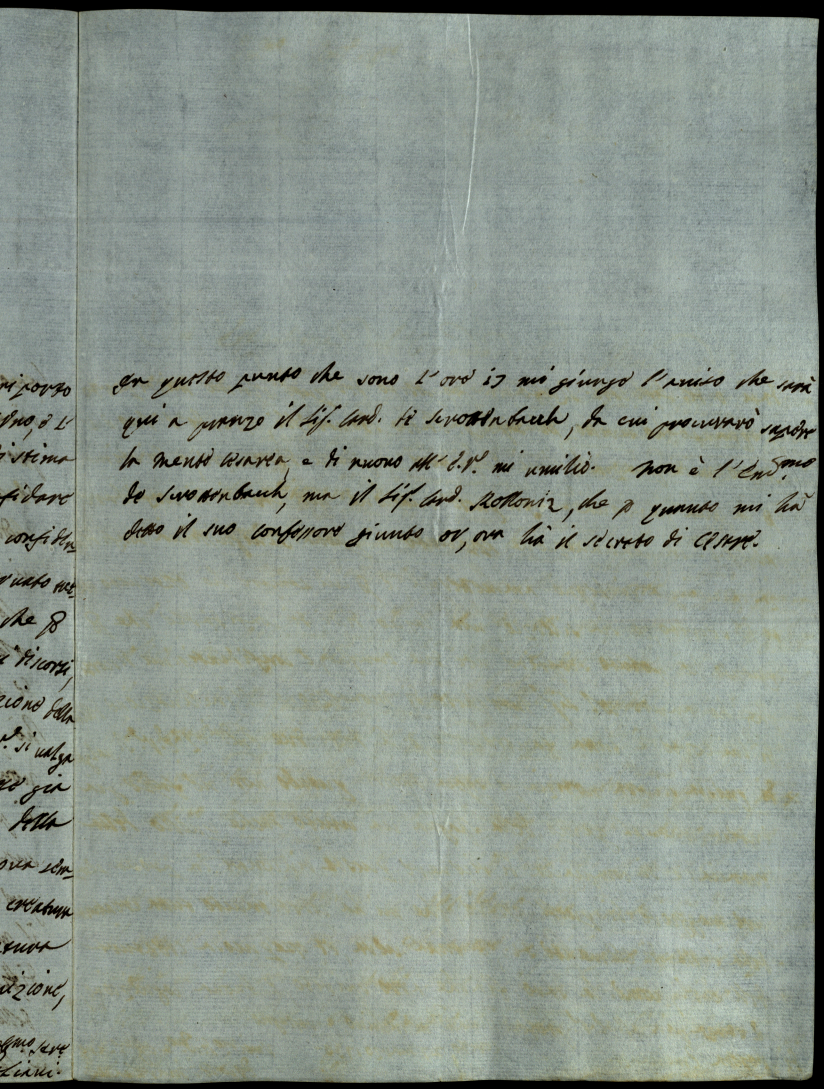 riporzo
dno, è l'
issima
fidare
confiden=
che p
i discorsi,
zione della
si valga
già
della
sem=
creatura
izione,
In questo punto che sono l'ore 17 mi giunge l'auiso che sarà
qui a pranzo il Sig. Card. di Scrottenbach, da cui procurarò sapere
la mente cesarea, e di nuovo all' E.V. mi umilio. Non è l'Em.mo
de Scrottenbach, ma il Sig. Card. Kolloniz, che p quanto mi hà
detto il suo confessore giunto or, ora hà il secreto di Cesare.